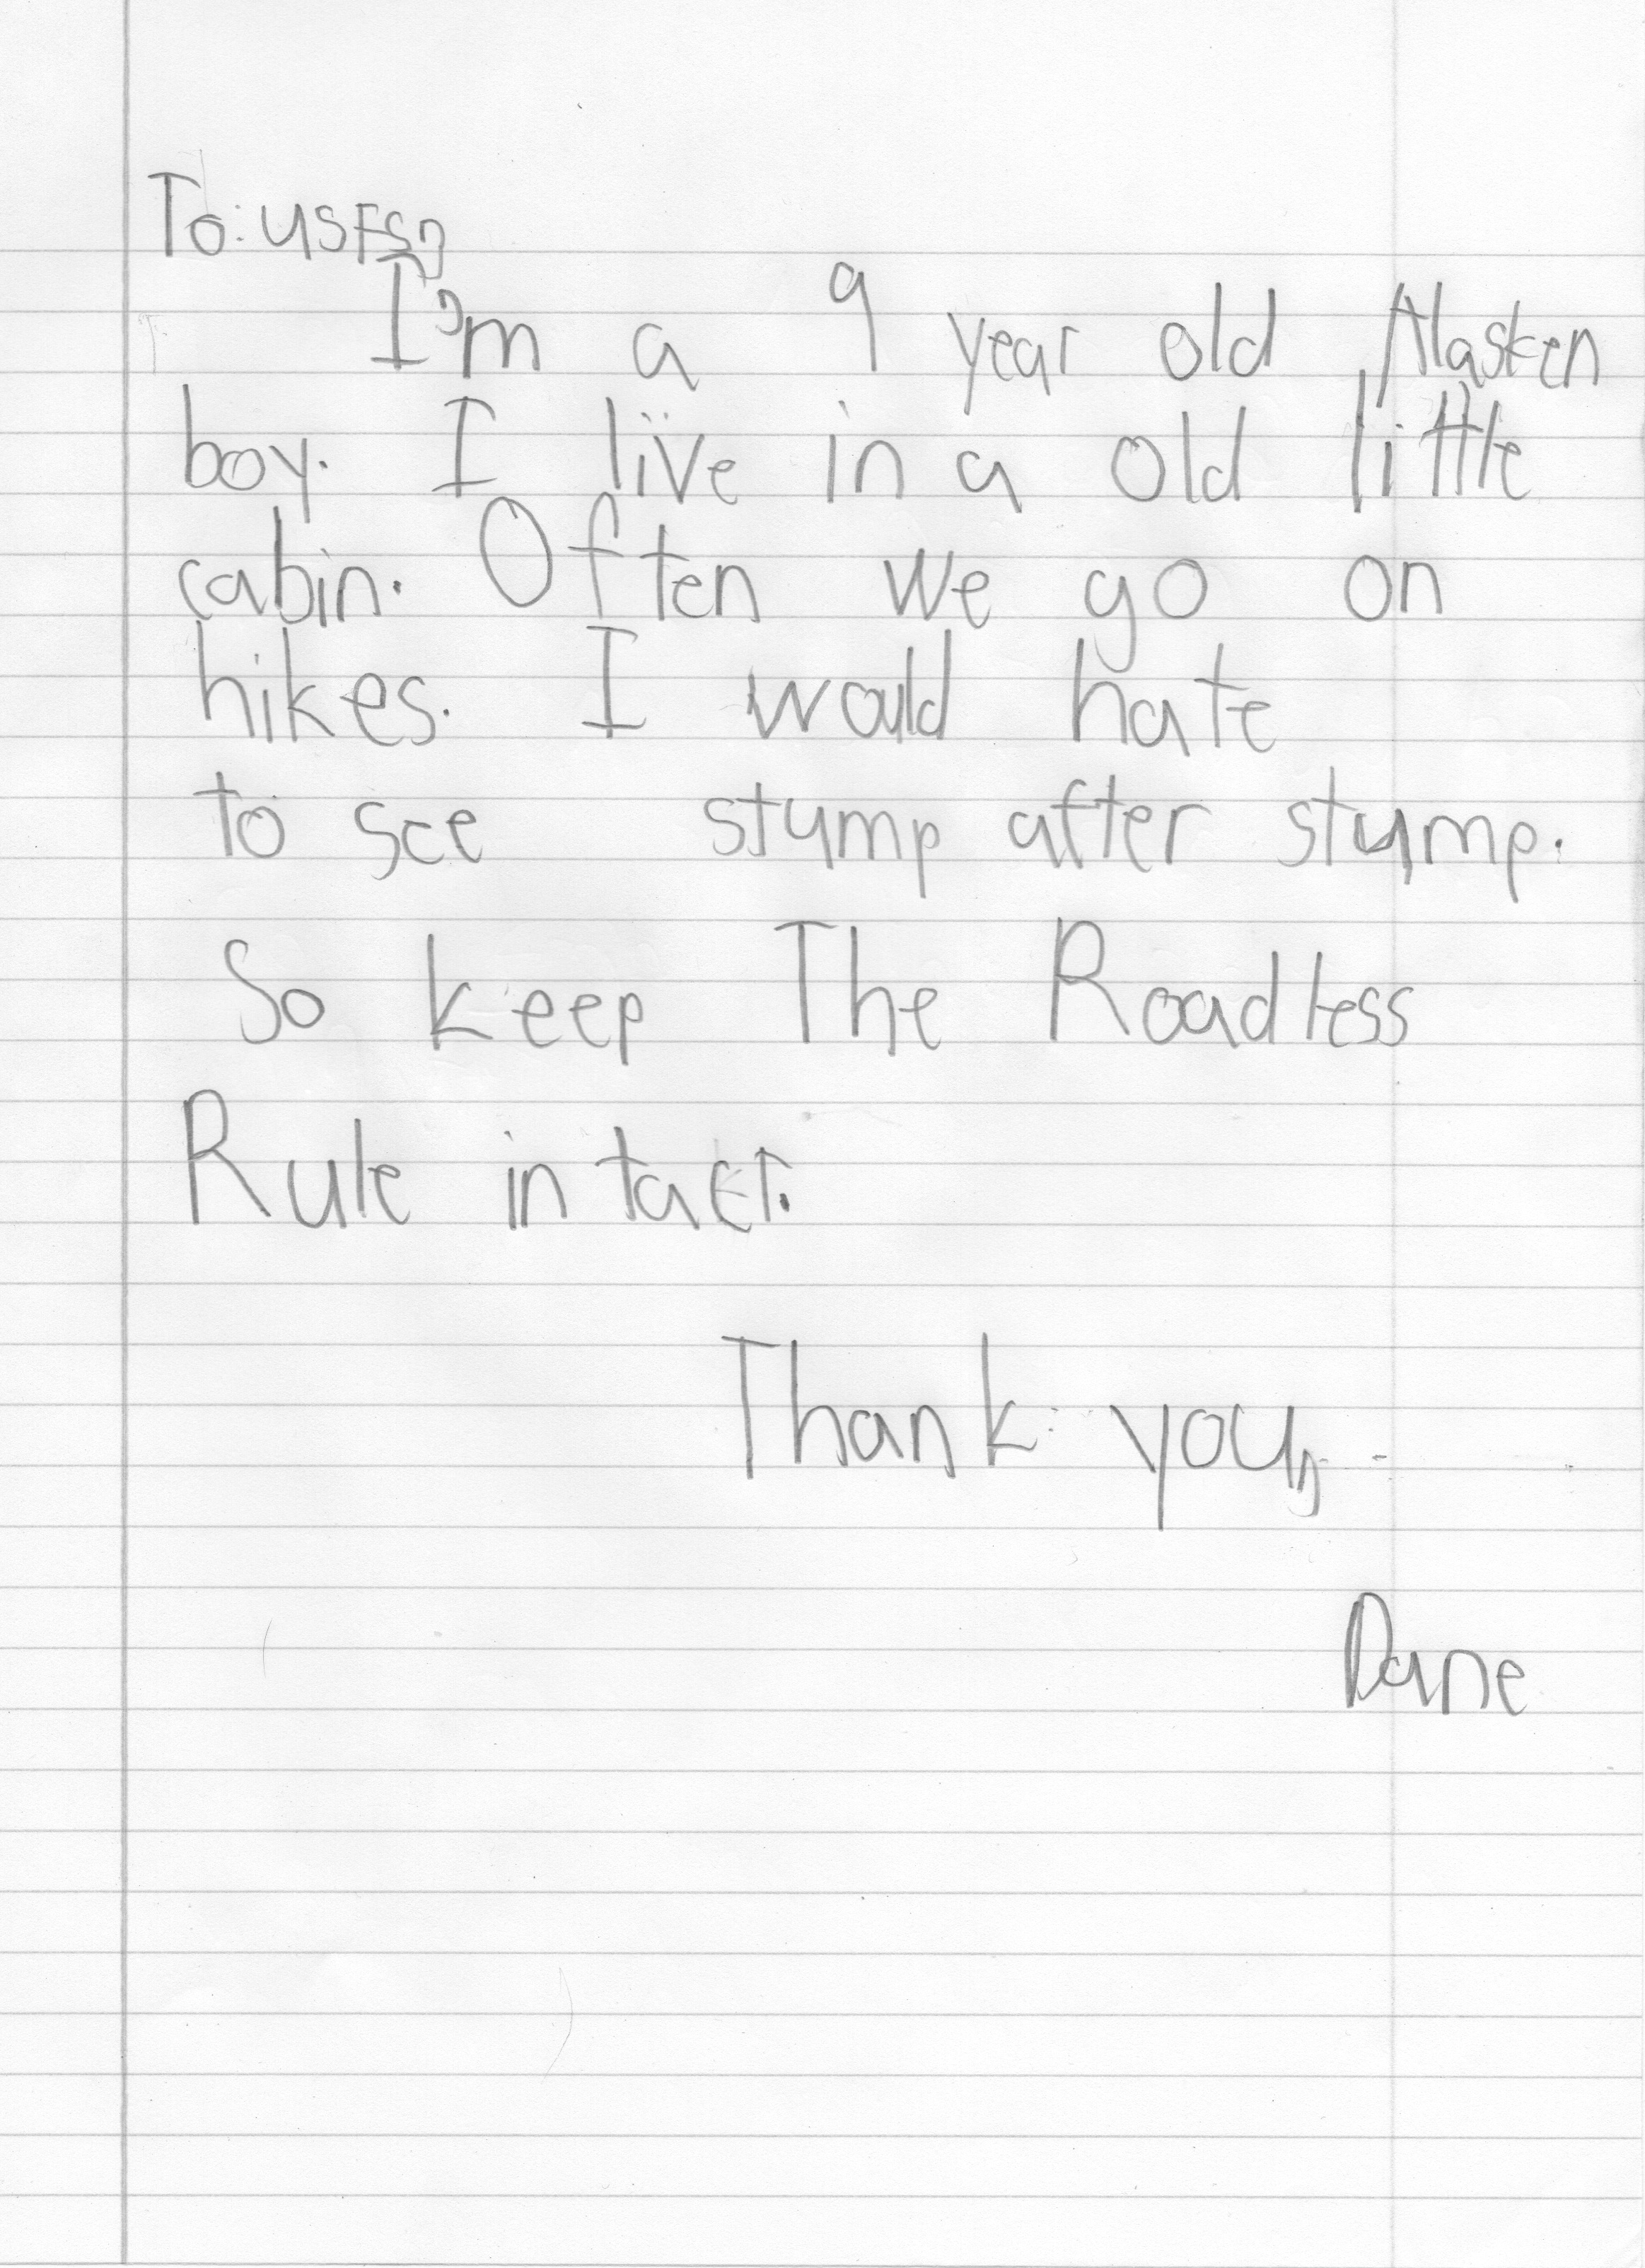 To: USFS,
I'm a 9 year old Alasken
boy. I live in a old little
cabin. Often we go on
hikes. I would hate
to see stump after stump.
So keep The Roadless
Rule intact.
Thank you,
Dane